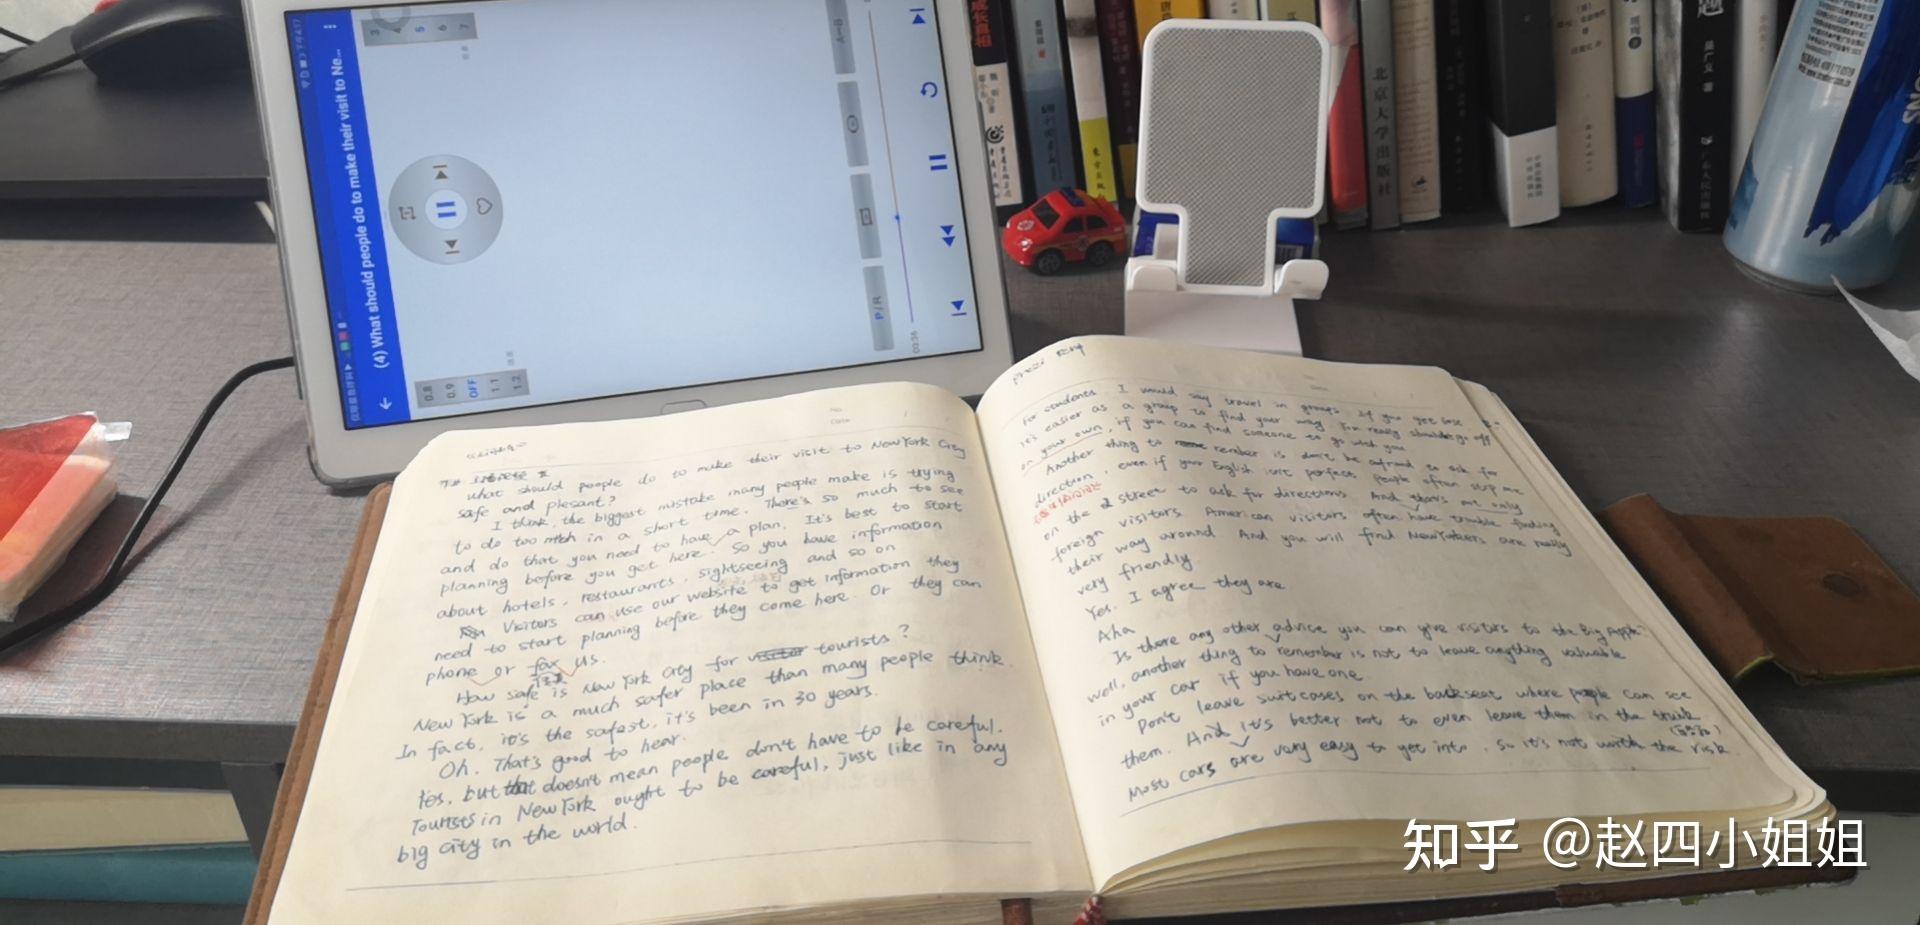 (4) What should people do to make their visit to Ne...
0.8
0.9
OFF
1.1
1.2
3
4
5
6
7
P/R
A-B
00:36
No.
Date
What should people do to make their visit to New York City
safe and plesant?
I think, the biggest mistake many people make is trying
to do too much in a short time. There's so much to see
and do that you need to have a plan. It's best to start
planning before you get here. So you have information
about hotels, restaurants, sightseeing and so on
Visitors can use our website to get information they
need to start planning before they come here. Or they can
phone or fax us.
How safe is New York City for tourists?
New York is a much safer place than many people think.
In fact, it's the safest, it's been in 30 years.
Oh. That's good to hear.
Yes, but that doesn't mean people don't have to be careful.
Tourists in New York ought to be careful, just like in any
big city in the world.
For students. I would say travel in groups. If you get lost
it's easier as a group to find your way. You really should go off
on your own, if you can find someone to go with you
Another thing to remember is don't be afraid to ask for
direction, even if your English isn't perfect. People often stop me
on the street to ask for directions. And that's not only
foreign visitors. American visitors often have trouble finding
their way around. And you will find NewYorkers are really
very friendly
Yes. I agree they are
Aha
Is there any other advice you can give visitors to the Big Apple?
Well, another thing to remember is not to leave anything valuable
in your car if you have one.
Don't leave suitcases on the backseat where people can see
them. And it's better not to even leave them in the trunk
Most cars are very easy to get into, so it's not worth the risk.
北京大学出版社
知乎 @赵四小姐姐